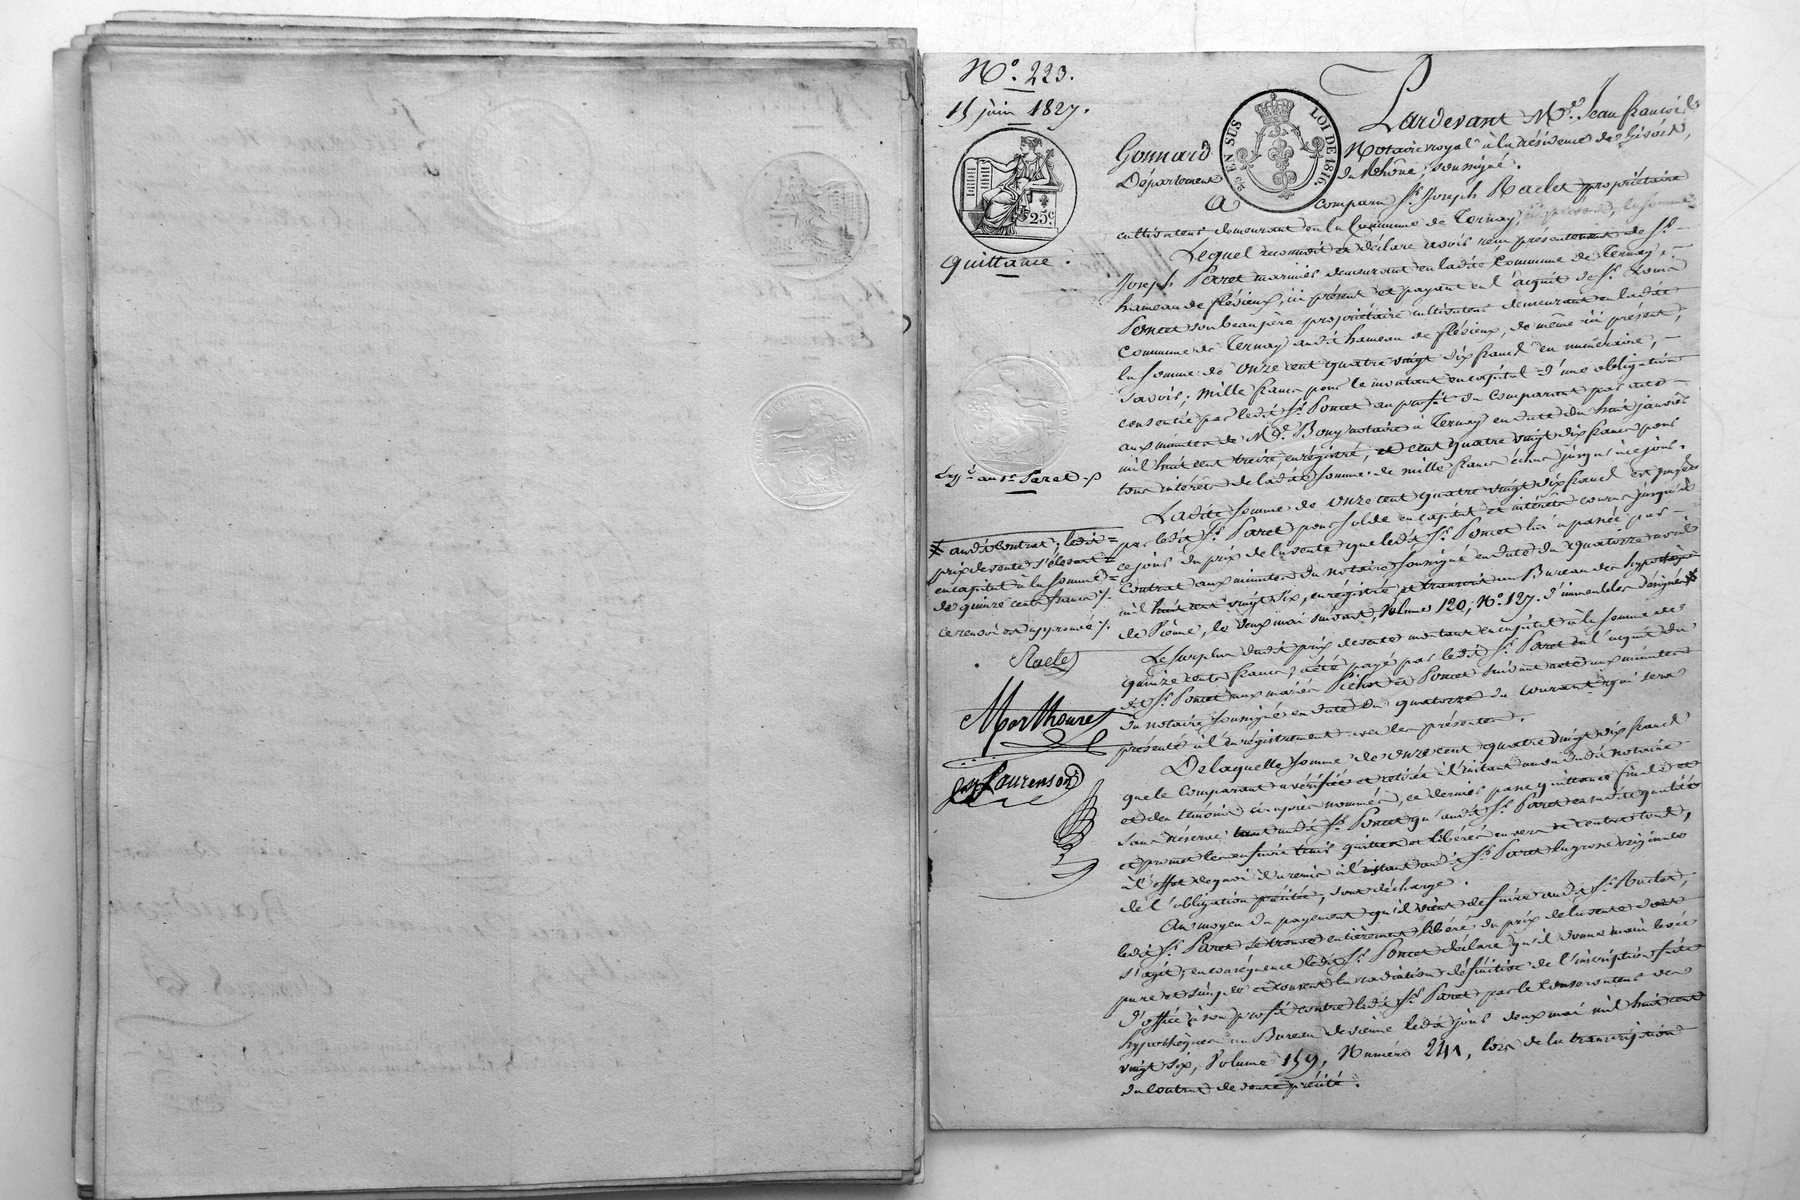 N.o 223.
15 juin 1827.
25c
Quittance.
Exp.on au sr Paret
Pardevant Me. Jean françois
Gonnard
EN SUS
LOI DE 1816.
Notaire royal à la résidence de Givors,
Département
du Rhône, soussigné.
A comparu Sr. Joseph Raclet propriétaire
cultivateur demeurant en la Commune de Ternay,
Lequel reconnait et déclare avoir reçu présentement de Sr.
Joseph Paret marinier demeurant en ladite Commune de Ternay,
hameau de flévieux, ici présent et payant en l'acquit de Sr.
Poncet son beau père propriétaire cultivateur demeurant en ladite
Commune de Ternay audit hameau de flévieux, de même ici présent,
la somme de onze cent quatre vingt dix francs en numéraire,
savoir; mille francs pour le montant en capital d'une obligation
consentie par ledit Sr. Poncet au profit du Comparant par acte
aux minutes de Me. Bony notaire à Ternay en date du huit janvier
mil huit cent treize, enregistré, et cent quatre vingt dix francs pour
tous intérêts de ladite somme de mille francs échus jusqu'à ce jour.
Ladite somme de onze cent quatre vingt dix francs est payée
par ledit Sr. Paret pour solde en capital et intérêts courus jusqu'à
ce jour du prix de la vente que ledit Sr. Poncet lui a passée par
Contrat aux minutes du notaire soussigné en date du quatorze avril
mil huit cent vingt six, enregistré et transcrit au Bureau des hypothèques
de Vienne, le deux mai suivant, Volume 120, No. 127. d'immeubles désignés
audit Contrat; ledit
prix de vente s'élevant
en capital à la somme
de quinze cents francs ./.
ce renvoi est approuvé ./.
Raclet
Morthoure
Laurenson
Le surplus dudit prix de vente montant en capital à la somme de
quinze cents francs, a été payé par ledit Sr. Paret en l'acquit du
dit Sr. Poncet aux mariés Pichot et Poncet suivant acte aux minutes
du notaire soussigné en date du quatorze du courant qui sera
présenté à l'enregistrement avec les présentes.
De laquelle somme de onze cent quatre vingt dix francs
que le Comparant a vérifiée et retirée à l'instant au vu dudit notaire
et des témoins ci après nommés, ce dernier passe quittance finale et
sans réserve tant audit Sr. Poncet qu'audit Sr. Paret en sadite qualité
et promet les en faire tenir quittes et libérés envers et contre tous,
à l'effet de quoi il a remis à l'instant audit Sr. Paret la grosse originale
de l'obligation précitée, dont décharge.
Au moyen du payement qu'il vient de faire audit Sr. Raclet,
ledit Sr. Paret se trouve entièrement libéré du prix de la vente dont
s'agit; en conséquence ledit Sr. Poncet déclare qu'il donne main levée
pure et simple et consent la radiation définitive de l'inscription faite
d'office à son profit contre ledit Sr. Paret par le Conservateur des
hypothèques au Bureau de Vienne ledit jour deux mai mil huit cent
vingt six, Volume 159, Numéro 241, lors de la transcription
du Contrat de vente précité.